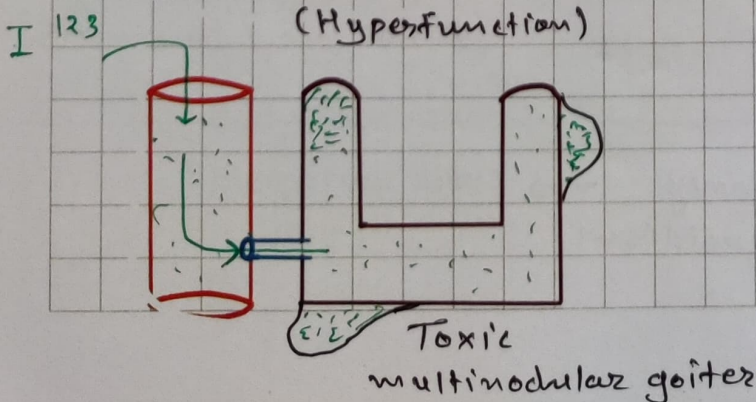 I 123
(Hyperfunction)
Toxic
multinodular goiter